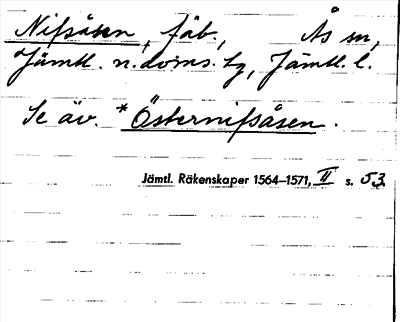 Nifsåsen, fäb., Ås sn,
Jämtl. n. doms. tg, Jämtl. l.
Se äv. *Östernifsåsen.
Jämtl. Räkenskaper 1564–1571, II s. 53